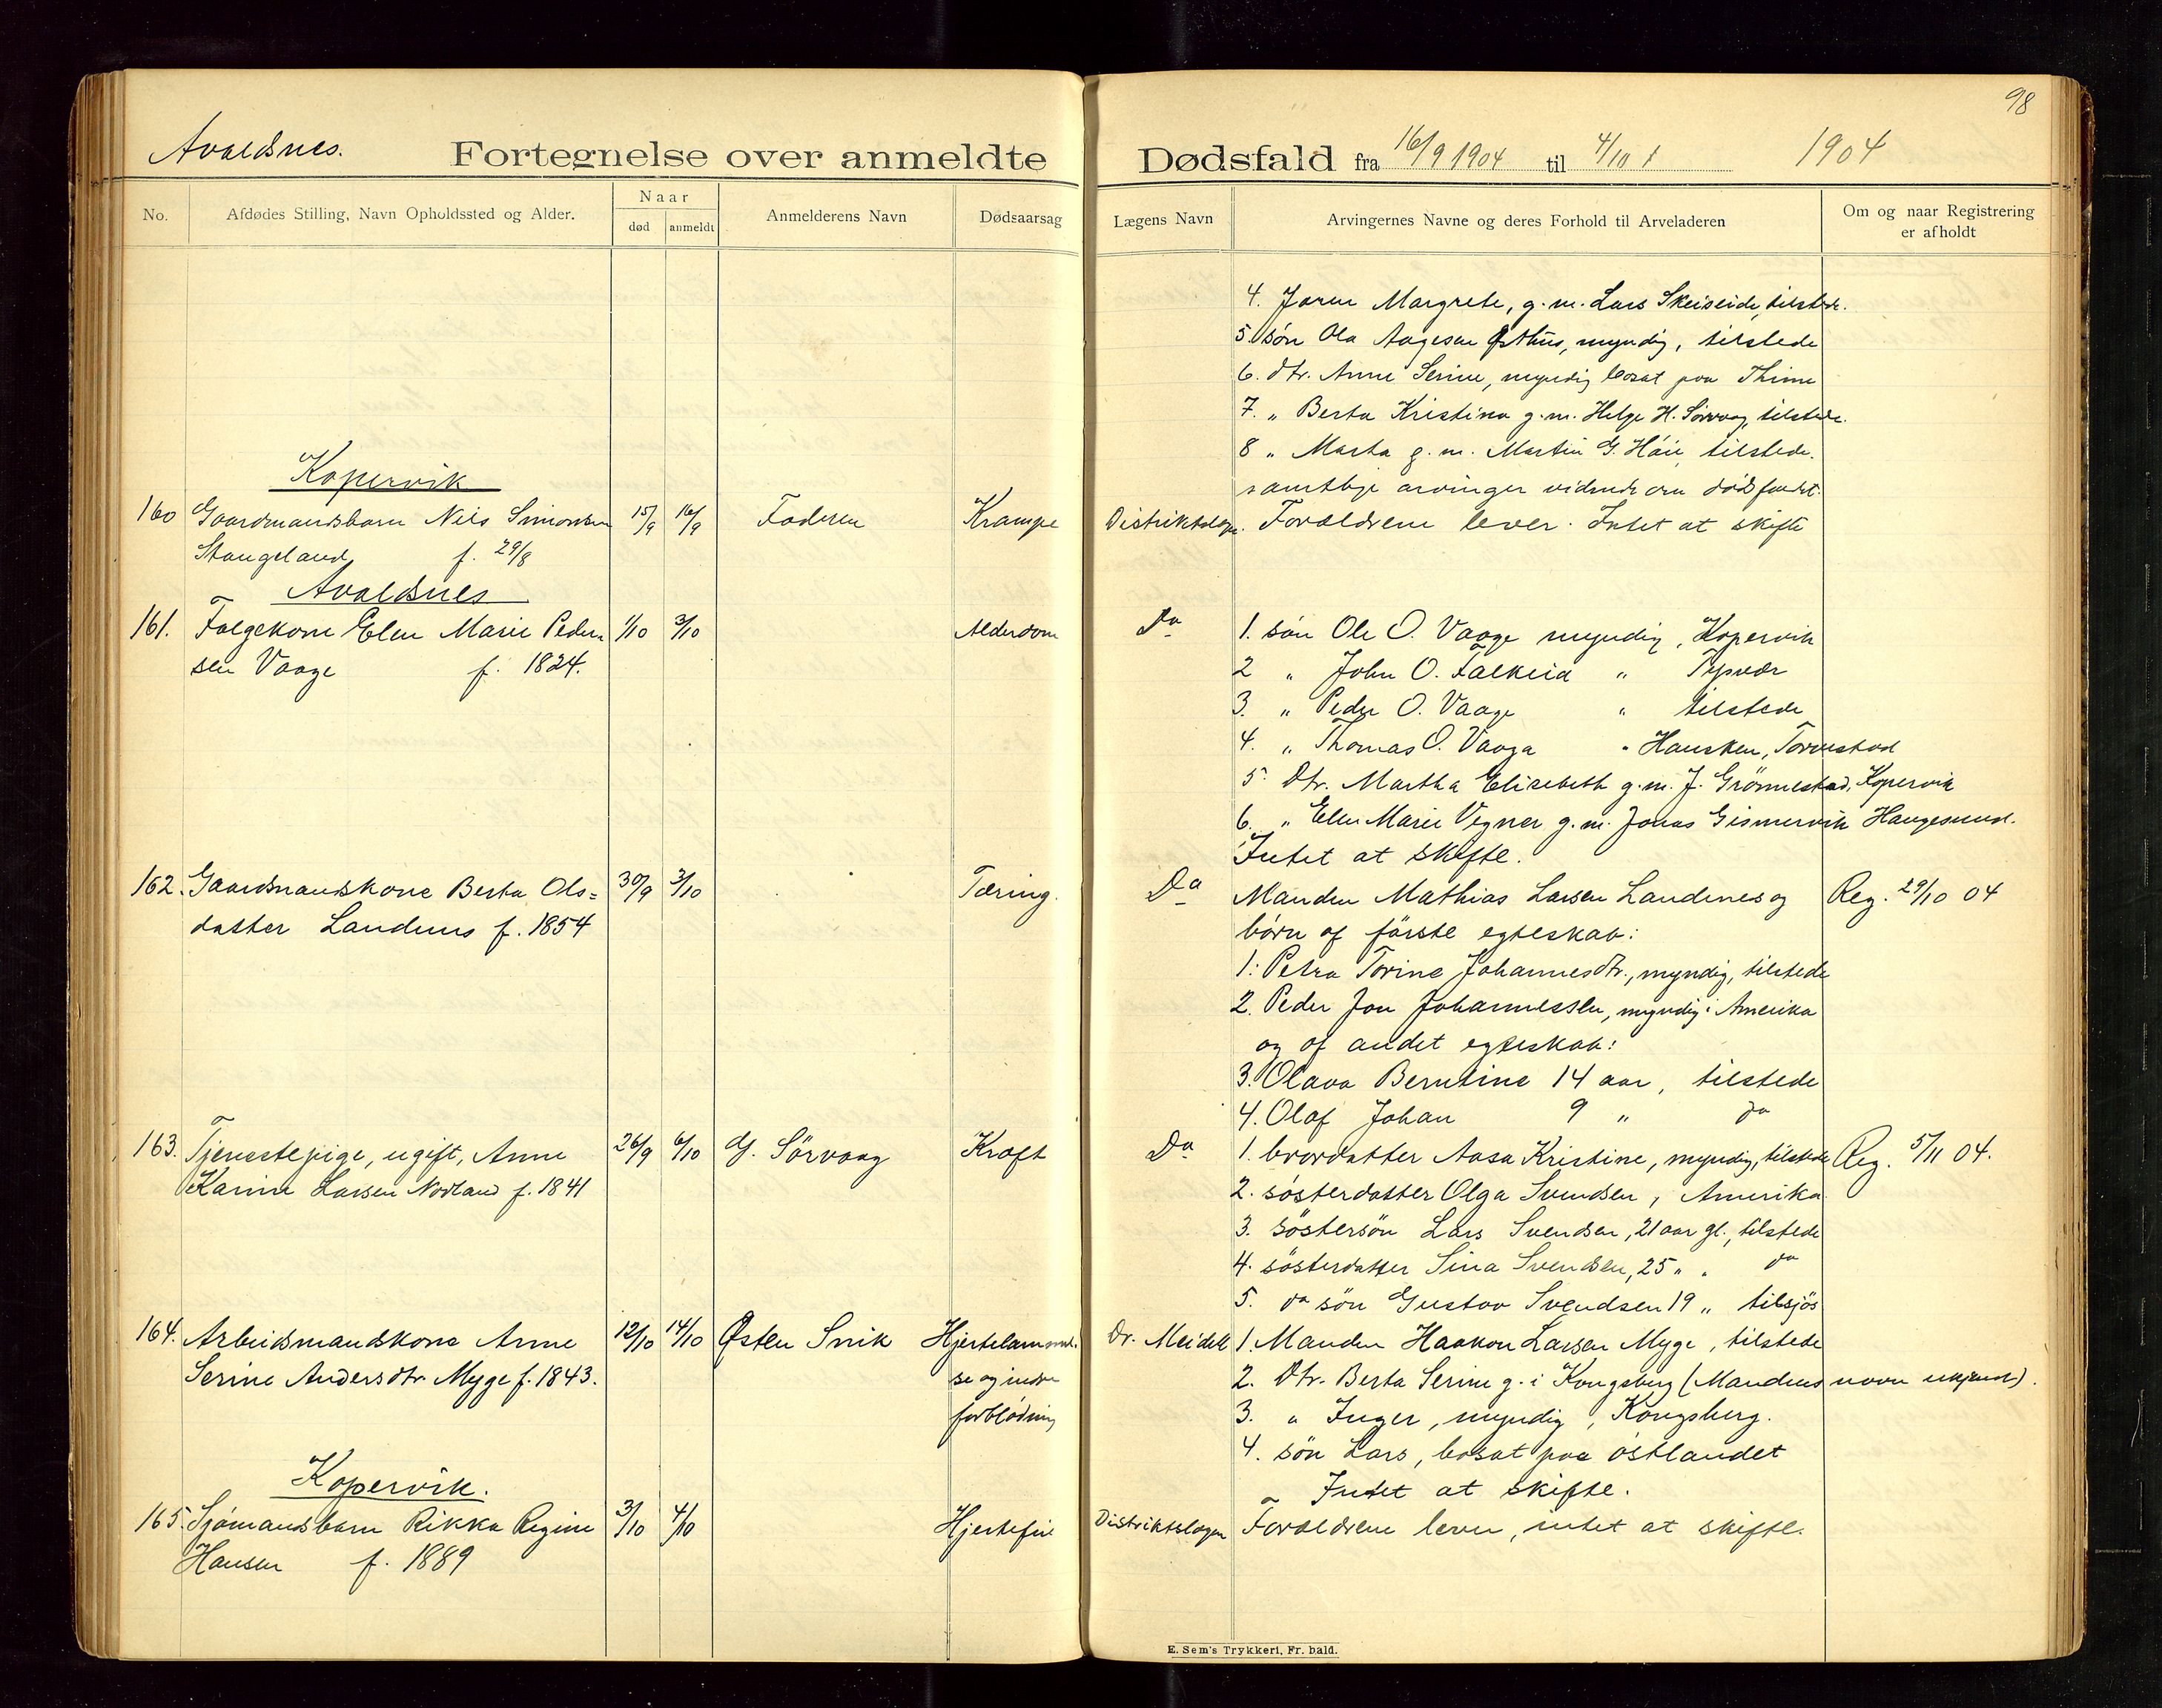 98
Avaldsnes.
Fortegnelse over anmeldte Dødsfald fra 16/9 1904 til 4/10 1904
No.
Afdødes Stilling, Navn Opholdssted og Alder.
Naar
død
anmeldt
Anmelderens Navn
Dødsaarsag
Lægens Navn
Arvingernes Navne og deres Forhold til Arveladeren
Om og naar Registrering
er afholdt
4. Margrete, g. m. Lars Skeiseide, tilstede.
5. søn Ola Aagesen Østhus, myndig, tilstede
6. dtr. Anne Serine, myndig bosat paa Thime
7. " Berta Kristina g. m. Helge H. Sørvaag, tilstede.
8 " Marta g. m. Martin G. Høie, tilstede.
samtlige arvinger vidende om dødsfaldet.
Kopervik
160 Gaardmandsbarn Nils Simonsen 15/9 16/9 Faderen Krampe Distriktslægen. Forældrene lever. Intet at skifte
Stangeland f. 29/8
Avaldsnes
161. Folgekone Elen Marie Peder= 1/10 3/10 Alderdom Do 1. søn Ole O. Vaage myndig, Kopervik
sen Vaage f. 1824. 2 " John O. Falkeid " Tysvær
3. " Peder O. Vaage " tilstede
4. " Thomas O. Vaaga " Hausken, Torvestad
5. Dtr. Martha Elisebeth g. m. J. Grönnestad, Kopervik
6. " Elen Marie Vegner g. m. Jonas Gismervik Haugesund.
Intet at skifte.
162. Gaardmandskone Berta Ols= 30/9 3/10 Tæring. Do Manden Mathias Larsen Landenes og Reg. 29/10 04
datter Landenes f. 1854 børn af første egteskab:
1. Petra Torine Johannesdtr., myndig, tilstede
2. Peder Jon Johannessen, myndig i Amerika
og af andet egteskab:
3. Olava Berntine 14 aar, tilstede
4. Olaf Johan 9 " do
163. Tjenestepige, ugift, Anne 26/9 6/10 G. Sörvaag Kræft Do 1. brordatter Aasa Kristine, myndig, tilstede Reg. 5/11 04.
Karine Larsen Nodland f. 1841 2. søsterdatter Olga Svendsen, Amerika
3. söstersön Lars Svendsen, 21 aar gl., tilstede
4. søsterdatter Sina Svendsen, 25 " " do
5. do søn Gustav Svendsen 19 " tilsjøs
164. Arbeidsmandskone Anne 12/10 14/10 Østen Snik Hjertelammel= Dr. Meidell 1. Manden Haakon Larsen Myge, tilstede
Serine Andersdtr Myge f. 1843. se og indre 2. Dtr. Berta Serine g. i Kongsberg (Mandens navn ukjendt).
forblødning 3. " Inger, myndig, Kongsberg.
4. søn Lars, bosat paa østlandet
Intet at skifte.
Kopervik.
165. Sjømandsbarn Rikka Regine 3/10 4/10 Hjertefeil Distriktslægen Forældrene lever, intet at skifte.
Hansen f. 1889
E. Sem's Trykkeri, Fr. hald.